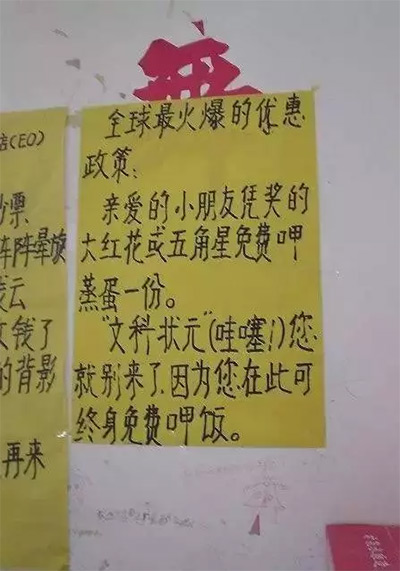 店(CEO)
钞票
阵阵晕旋
钱了
的背影
再来
無
全球最火爆的优惠
政策:
亲爱的小朋友凭奖的
大红花或五角星免费呷
蒸蛋一份。
"文科状元"(哇噻!)您
就别来了,因为您在此可
终身免费呷饭。